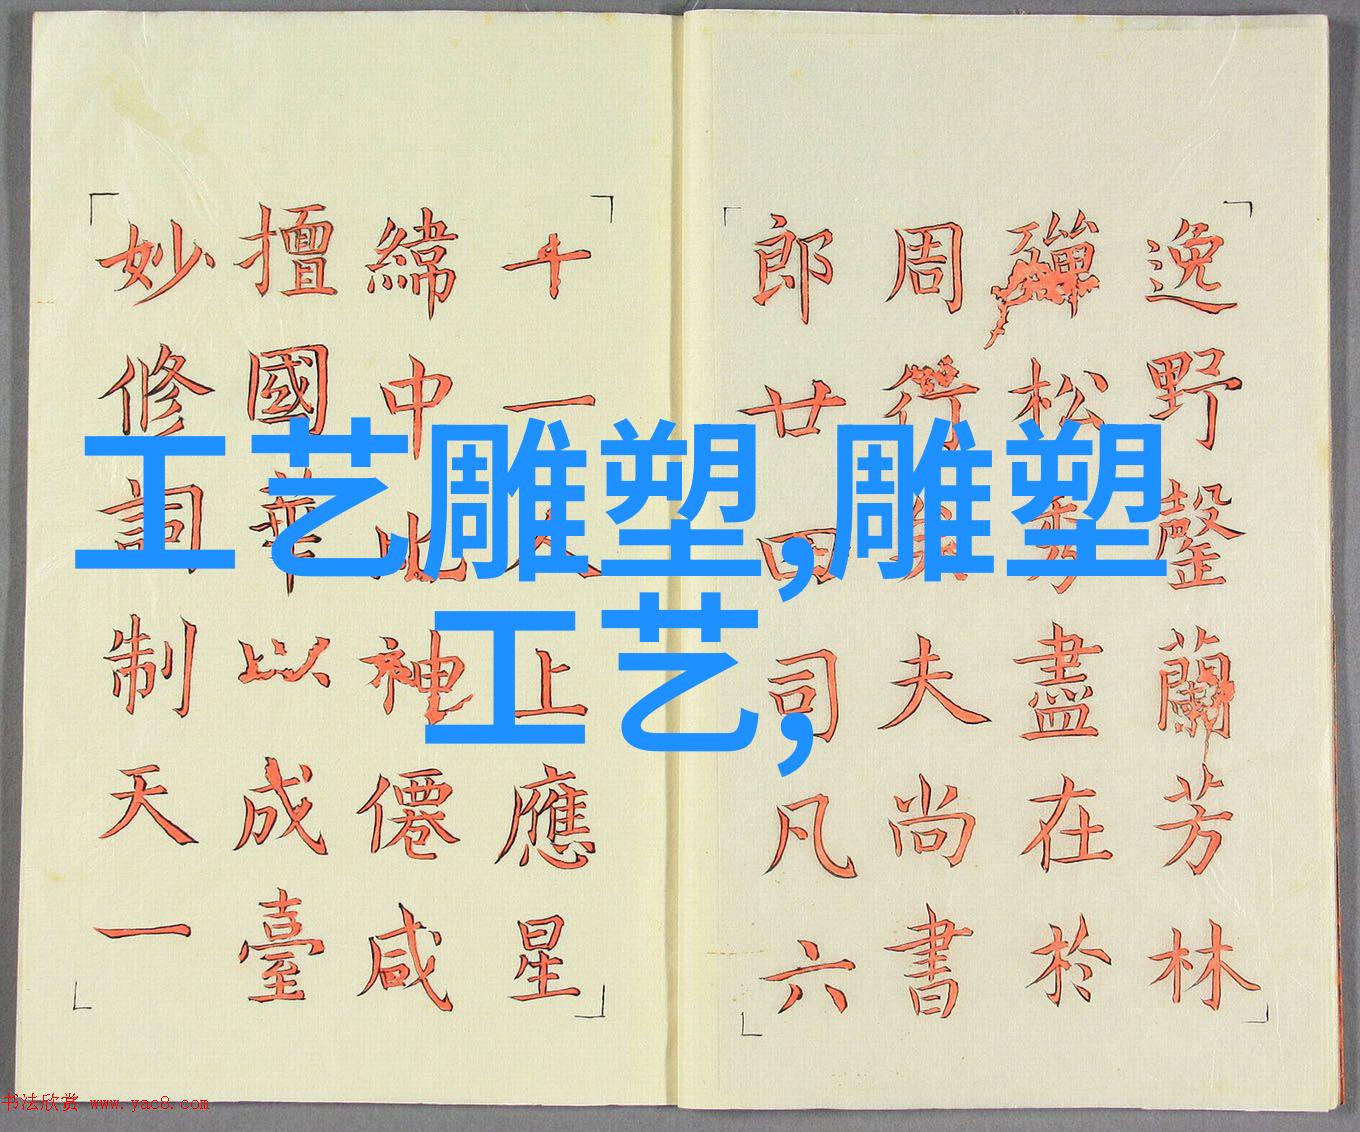 逸野罄蘭芳林
殫松秀盡在於
周行矣夫尚書
郎廿四司凡六
十一人上應星
緯中比神僊咸
擅國華以成臺
妙修詞制天一
工艺雕塑,雕塑
工艺,
书法欣赏 www.yac8.com